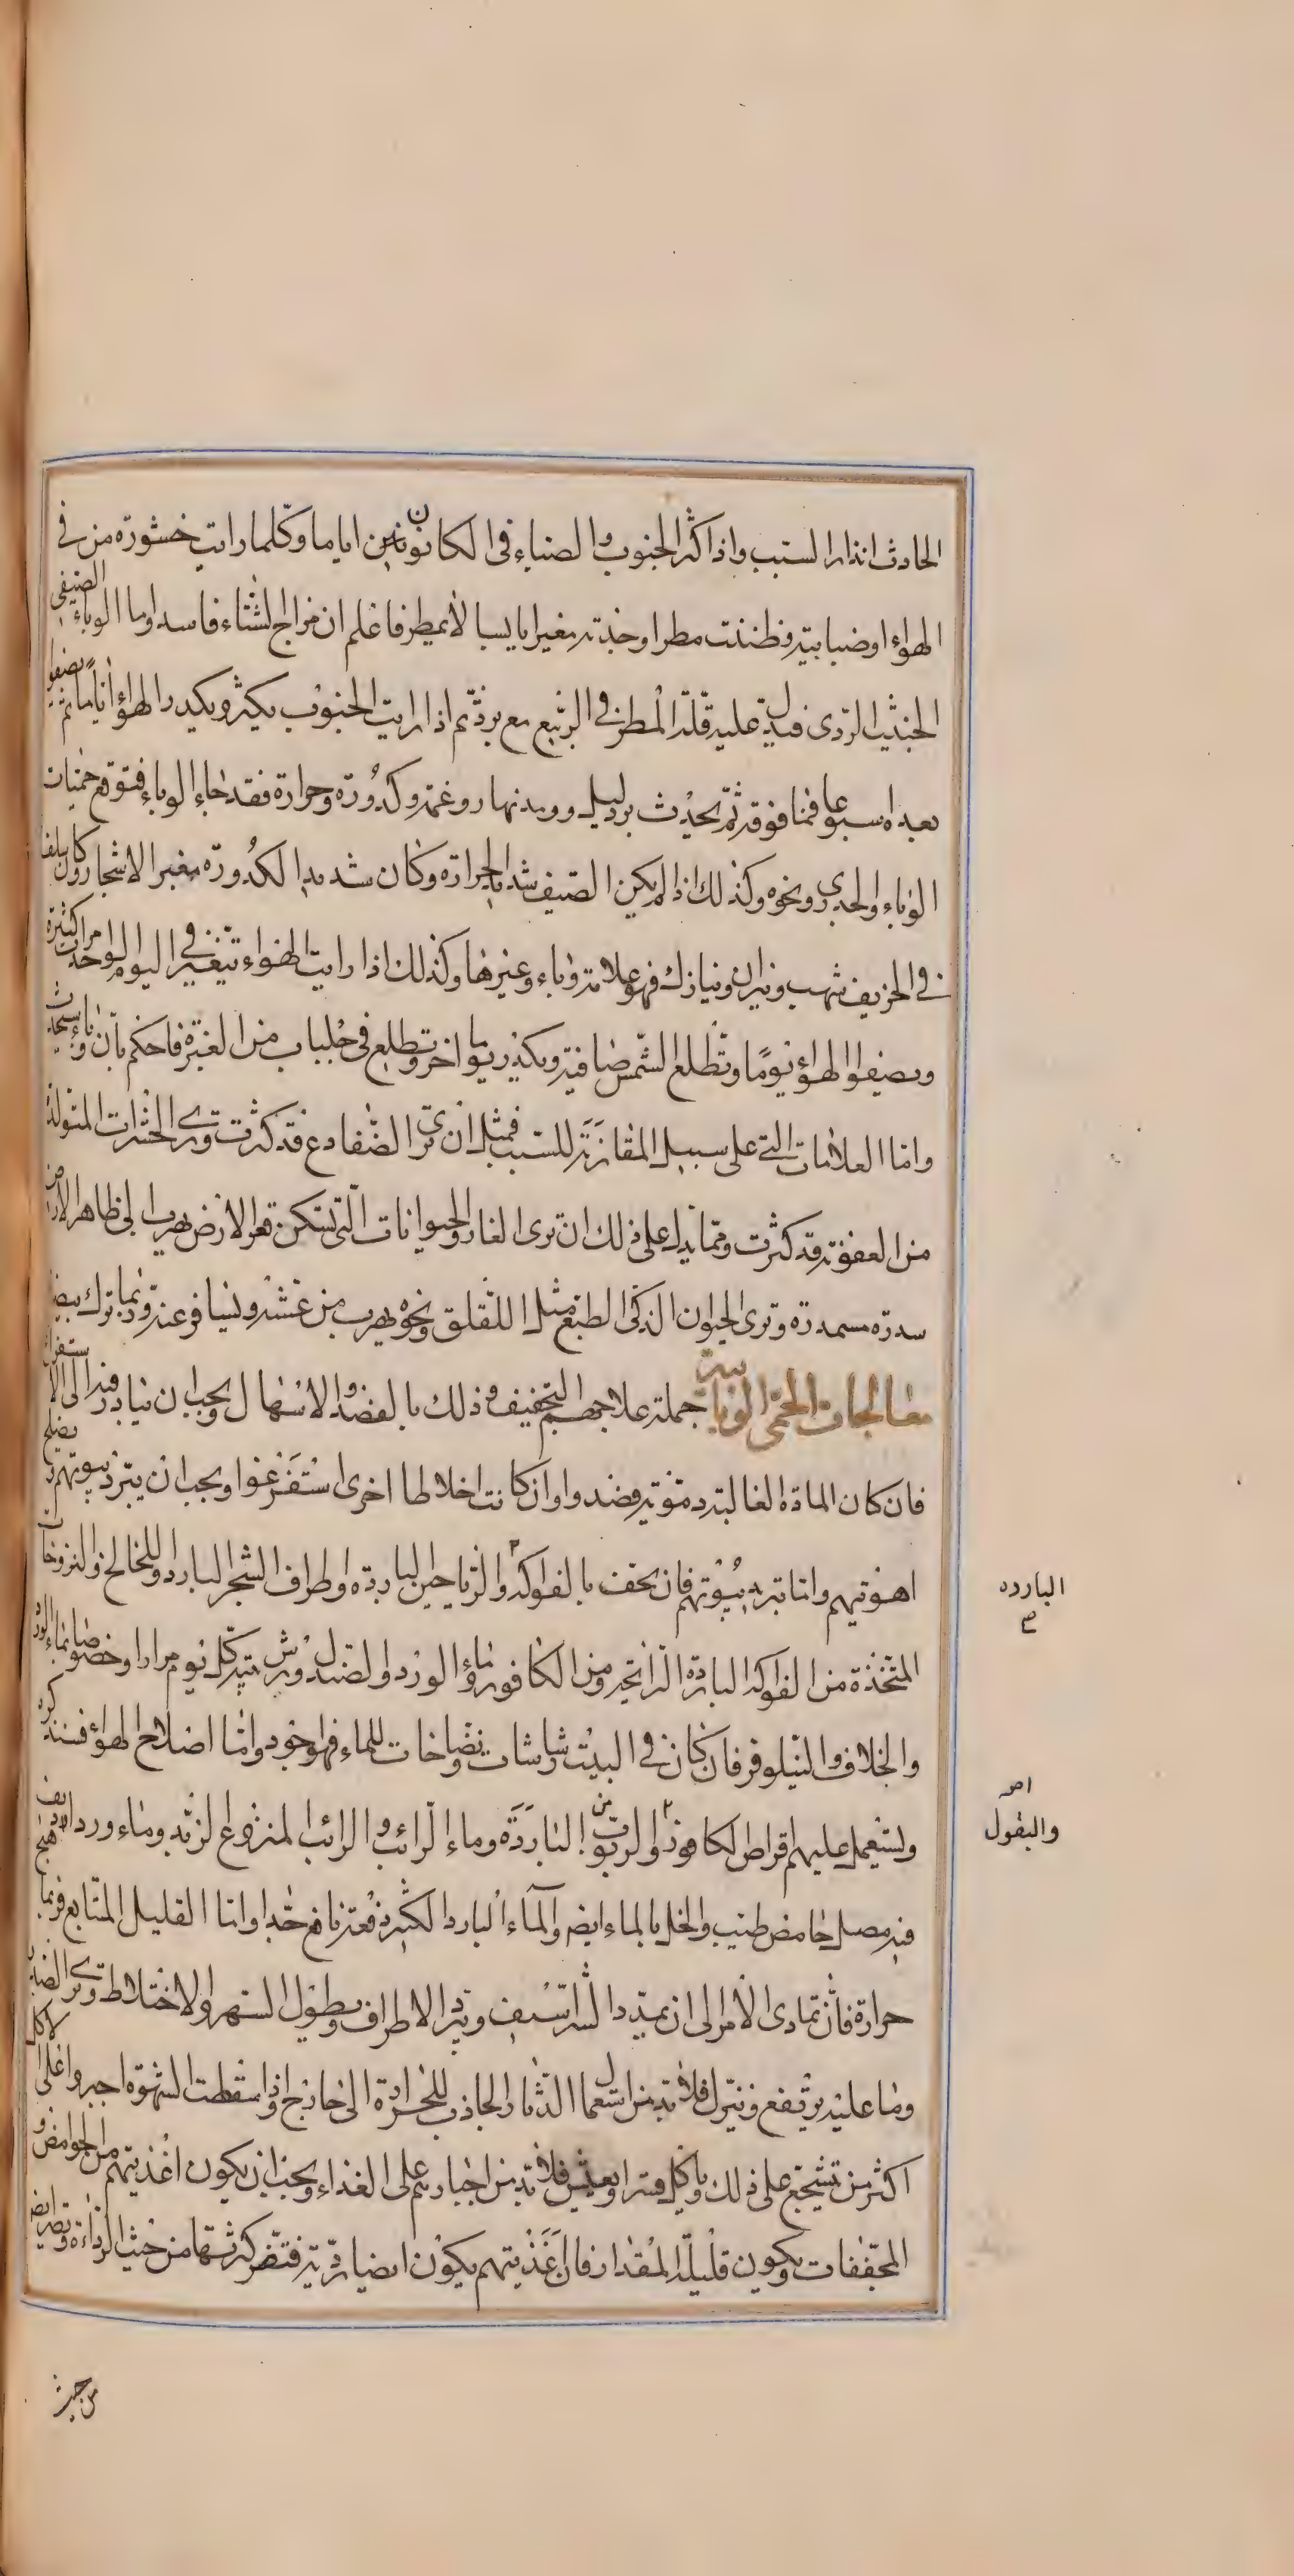 الحادث انذار السبب واذا كثر الجنوب والصباء فى الكانونين اياما وكلما رايت خشورة من فى
الهواء او ضبابية فظننت مطرا وجدته مغبرا يابسا لا يمطر فاعلم ان مزاج الشتاء فاسد اوما الوباء الصيفى
الخبيث الردى فيدل عليه قلة المطر فى الربيع مع برد ثم اذا رايت الجنوب يكثر ويكدر الهواء اياما ثم يصفوا
بعده اسبوعا فما فوقه ثم يحدث برد ليل وومد نهار وغمة وكدورة وحرارة فقد جاء الوباء فتوقع حميات
الوباء والجدرى ونحوه وكذلك اذا لم يكن الصيف شديد الحرارة وكان شديد الكدورة مغبر الاشجار وكان سلف
فى الخريف شهب ونيران ونيازك فهو علامة وباء وغيرها وكذلك اذا رايت الهواء يتغير فى اليوم الواحد مرات كثيرة
ويصفوا الهواء يوما وتطلع الشمس صافية ويكدر يوما اخر وتطلع فى جلباب من الغبرة فاحكم بان وباء سيحدث
واما العلامات التى على سبيل المقارنة للسبب فمثل ان ترى الضفادع قد كثرت وترى الحشرات المتولدة
من العفونة قد كثرت ومما يدل على ذلك ان ترى الفار والحيوانات التى تسكن قعر الارض يهرب الى ظاهر الارض
سدرة مسمدرة وترى الحيوان الذكى الطبع مثل اللقلق ونحوه يهرب من عشه ويسافر عنه وربما ترك بيضه
معالجات الحمى الوبائية جملة علاجهم التجفيف وذلك بالفصد والاسهال ويجب ان يبادر فيه الى الاستفراغ
فان كان المادة الغالبة دموية فصدوا وان كانت اخلاطا اخرى استفرغوا ويجب ان يبرد بيوتهم ويصلح
اهويتهم واما تبريد بيوتهم فان يحف بالفواكه والرياحين الباردة واطراف الشجر البارد واللخالخ والنزوخات
المتخذة من الفواكه الباردة الرائحة ومن الكافور وماء الورد والصندل ورش بيته كل يوم مرارا وخصوصا بماء الورد
والخلاف والنيلوفر فان كان فى البيت رشاشات ونضاخات للماء فهو اجود واما اصلاح الهواء فسنذكره
ولستعمل عليهم اقراص الكافور والربوب الباردة من وماء الرائب والرائب المنزوع الزبد وماء ورد ايضا هيج
فيه مصل حامض طيب والخل بالماء ايضا والماء البارد الكثير دفعة نافع جدا واما القليل المتتابع فربما
حرارة فان تمادى الامر الى ان يمتد الشراسيف وتبرد الاطراف ويطول السهر والاختلاط وترى الصدر
وما عليه يرتفع وينزل فلا بد من استعمال الدثار الجاذب للحرارة الى خارج واذا سقطت الشهوة اجبروا على الاكل
اكثر من تشجع على ذلك وياكل قسرا ويعيش فلا بد من اجبارهم على الغذاء ويجب ان يكون اغذيتهم من الحوامض و
المجففات ويكون قليلة المقدار فان اغذيتهم يكون ايضا ردية فتضر كثرتها من حيث الرداءة وتضر ايضا
من حيث
البارده
صح
والبقول